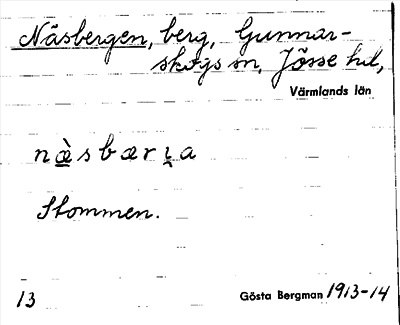 Näsbergen, berg, Gunnar-
skogs sn, Jösse hd,
Värmlands län
næ̀sbærɩ̨a
Stommen.
13
Gösta Bergman 1913-14